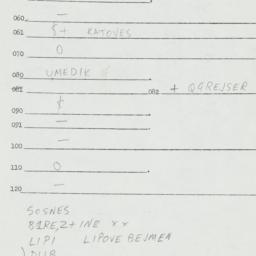 060. —
061 $+ KATOVES
070 O
080 UMEDIK
081 082 + OGREJSER
090 ¢
091 —
100 —
110 O
120 —
SOSNES
BIRE,Z+INE xx
LIPI LIPOVE BEJMEA
) DUB